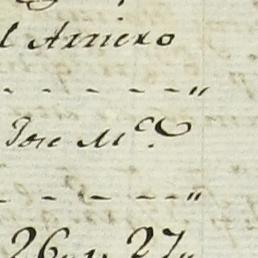 l Arriero
- - - - - - "
Jose M.ª
- - - - - "
26 y 27 "